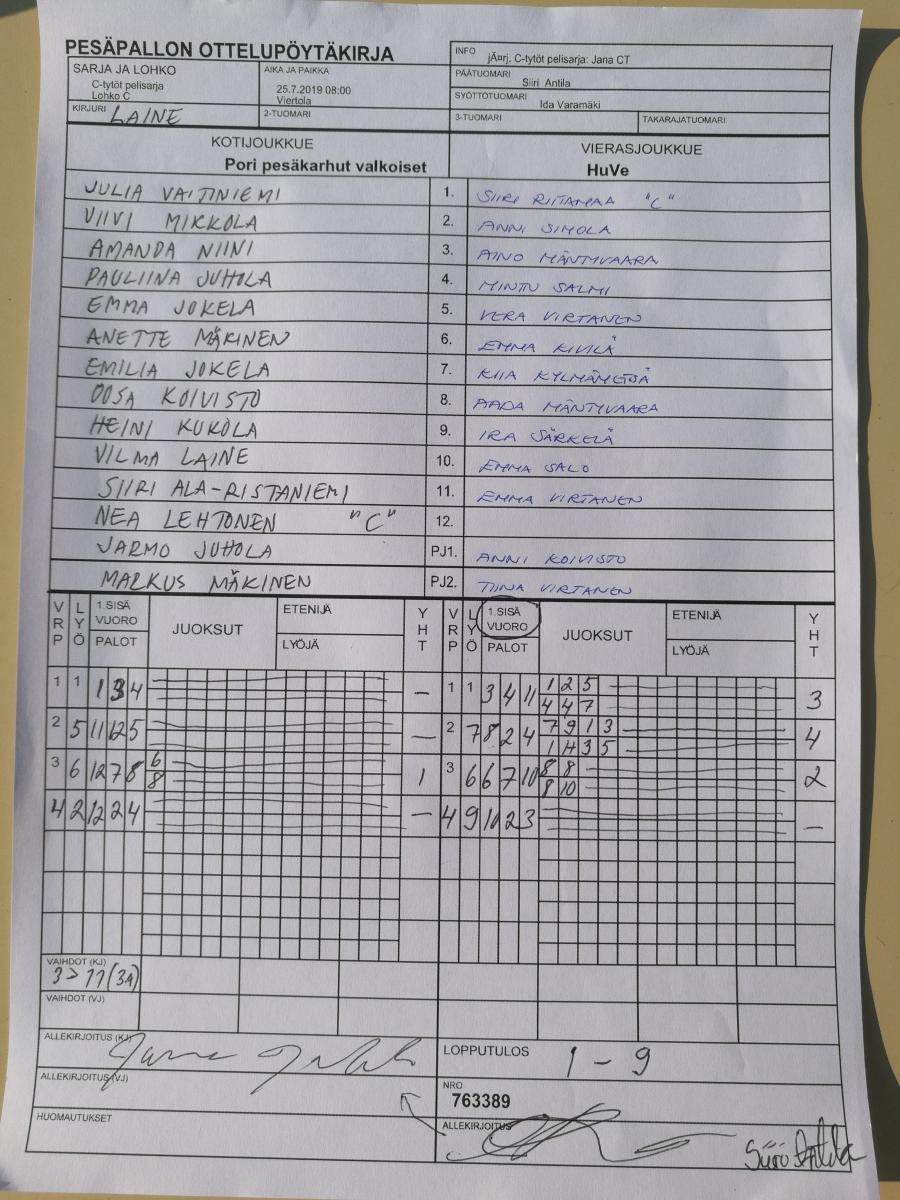 PESÄPALLON OTTELUPÖYTÄKIRJA
INFO jÃ¤rj. C-tytöt pelisarja: Jana CT
SARJA JA LOHKO
C-tytöt pelisarja
Lohko C
AIKA JA PAIKKA
25.7.2019 08:00
Viertola
PÄÄTUOMARI Siiri Antila
SYÖTTÖTUOMARI Ida Varamäki
KIRJURI LAINE
2-TUOMARI
3-TUOMARI
TAKARAJATUOMARI
KOTIJOUKKUE
Pori pesäkarhut valkoiset
VIERASJOUKKUE
HuVe
JULIA VAITINIEMI 1. SIIRI RIITAMAA "C"
VIIVI MIKKOLA 2. ANNI SIMOLA
AMANDA NIINI 3. AINO MÄNTYVAARA
PAULIINA JUHOLA 4. MINTU SALMI
EMMA JOKELA 5. VERA VIRTANEN
ANETTE MÄKINEN 6. EMMA KIVILÄ
EMILIA JOKELA 7. KIIA KYLMÄMETSÄ
OOSA KOIVISTO 8. AADA MÄNTYVAARA
HEINI KUKOLA 9. IRA SÄRKELÄ
VILMA LAINE 10. EMMA SALO
SIIRI ALA-RISTANIEMI 11. EMMA VIRTANEN
NEA LEHTONEN "C" 12.
JARMO JUHOLA PJ1. ANNI KOIVISTO
MARKUS MÄKINEN PJ2. TIINA VIRTANEN
VRP LYÖ 1.SISÄ VUORO PALOT JUOKSUT ETENIJÄ LYÖJÄ YHT VRP LYÖ 1.SISÄ VUORO PALOT JUOKSUT ETENIJÄ LYÖJÄ YHT
1 1 1 3 4 – 1 1 3 4 11 1 2 5 3
4 4 7
2 5 11 12 5 – 2 7 8 2 4 7 9 1 3 4
1 11 3 5
3 6 12 7 8 6 1 3 6 6 7 10 8 8 2
8 8 10
4 2 12 2 4 – 4 9 10 2 3 –
VAIHDOT (KJ)
3 > 11 (3A)
VAIHDOT (VJ)
ALLEKIRJOITUS (KJ)
LOPPUTULOS 1 - 9
ALLEKIRJOITUS (VJ)
NRO
763389
HUOMAUTUKSET
ALLEKIRJOITUS
Siiri Antila